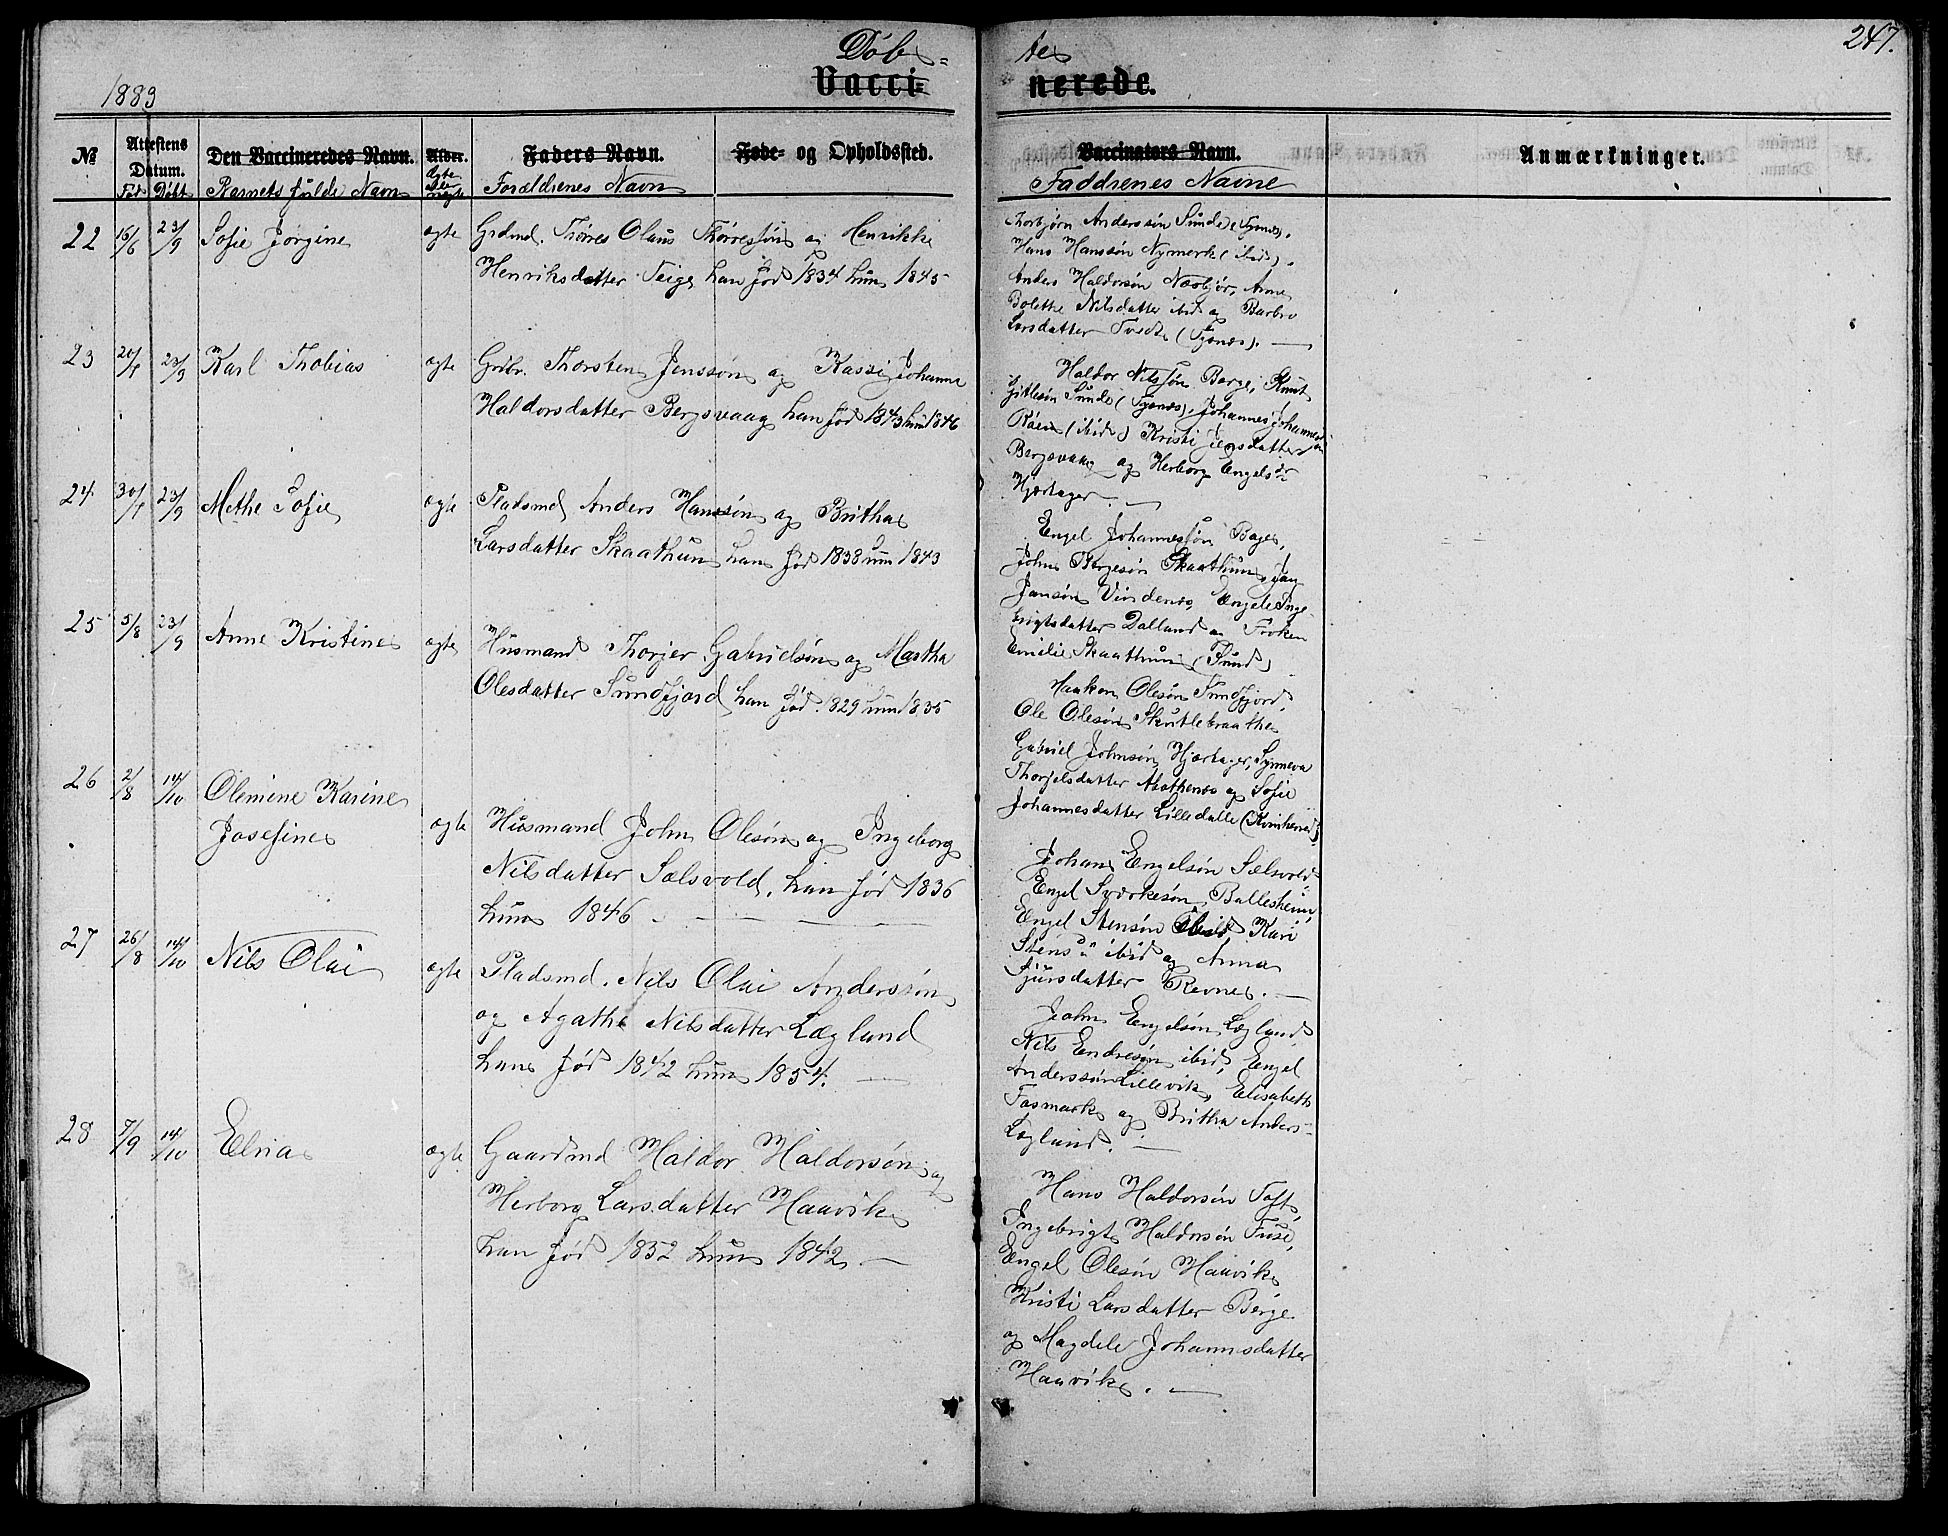 247.
Døb= tes
Vacci= nerede.
1883
№
Attestens Datum.
Den Vaccineredes Navn.
Alder.
Faders Navn.
Føde- og Opholdssted.
Vaccinators Navn.
Anmærkninger.
Fød Døbt
Barnets fulde Navn
ægte eller uægte
Forældrenes Navn
Faddrenes Navne
22 16/6 23/9 Sofie Jørgine ægte Grdmd. Tørres Olaus Tørressøn og Henrikke
Henriksdatter Teige han fød 1834 hun 1845
Thorbjørn Anderssøn Sunde (Tysnes),
Hans Hanssøn Nymark (ibid),
Anders Haldorsøn Næsbjør, Anne
Bolethe Nilsdatter ibid og Barbro
Larsdatter Tvedt (Tysnes). —
23 20/7 23/9 Karl Thobias ægte Grdbr. Thorsten Jenssøn og Kassi Johanne
Haldorsdatter Bergsvaag han fød 1843 hun 1846
Haldor Nilssøn Berge, Knut
Gitlesøn Sunde (Tysnes), Johannes Johannessøn
Røen (ibid) Kristi Jensdatter
Bergsvaag og Herborg Engelsdr
Hjartager. —
24 30/7 23/9 Methe Sofie ægte Pladsmd Anders Hanssøn og Britha
Larsdatter Skaathun han fød 1838 hun 1843
Engel Johannessøn Boge,
John Børgesøn Skaathun, Jan
Jansøn Vindenes, Engele Inge-
brigtsdatter Dalland og Frøken
Emilie Skaathun (Sund)
25 5/8 23/9 Anne Kristine ægte Husmand Thorjer Gabrielsøn og Martha
Olesdatter Sundfjord han fød. 1829 hun 1835
Haakon Olesøn Sundfjord,
Ole Olesøn Skutlebraathe
Gabriel Johnsøn Hjartager, Synneva
Thorjelsdatter og Sofie
Johannesdatter Lilledalle (Kvinherred)
26 2/8 14/10 Olemine Karine
Josefine ægte Husmand John Olesøn og Ingeborg
Nilsdatter Sælsvold, han fød 1836
hun 1846. — — —
Johan Engelsøn Sælsvold
Engel Sværkesøn Ballesheim,
Engel Stensøn ibid Kari
Stensdr ibid og Anna
Sjursdatter Revne. —
27 26/8 14/10 Nils Olai ægte Pladsmd. Nils Olai Anderssøn
og Agathe Nilsdatter Lægland
han fød 1842 hun 1854. —
John Engelsøn Lægland
Nils Endresøn ibid, Engel
Anderssøn Lillevik, Elisabeth
Fosmark og Britha Anders-
Lægland. —
28 7/9 14/10 Elna ægte Gaardmd Haldor Haldorsøn og
Herborg Larsdatter Haavik
han fød 1832 hun 1842. —
Hans Haldorsøn Toft,
Ingebrigt Haldorsøn Fuse,
Engel Olesøn Haavik
Kristi Larsdatter Berge
og Magdele Johannesdatter
Haavik. —